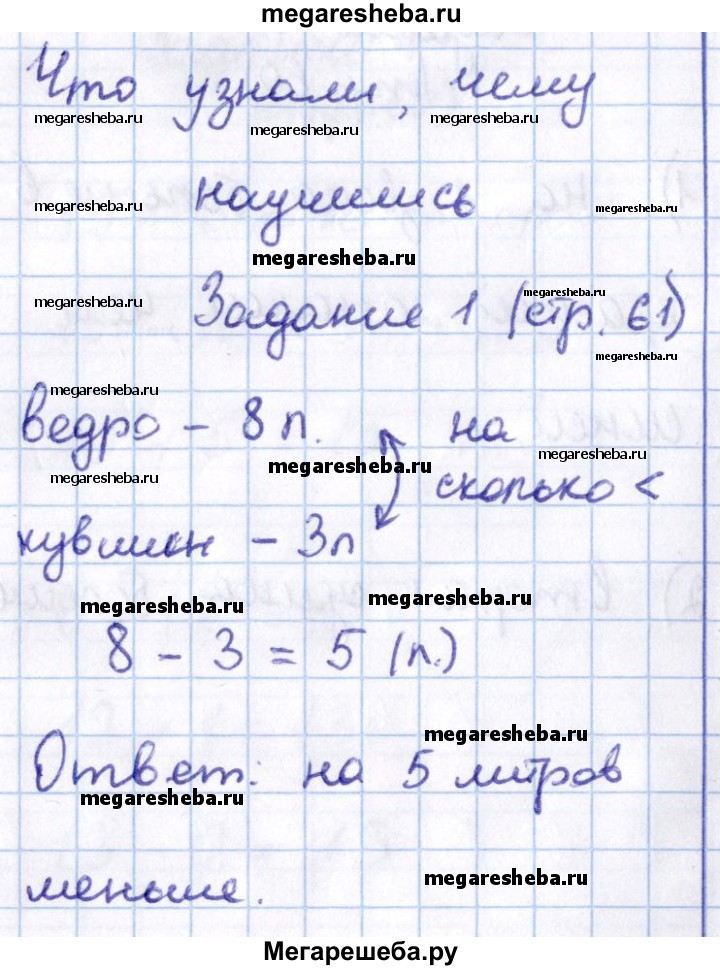 megaresheba.ru
Что узнали, чему
megaresheba.ru megaresheba.ru megaresheba.ru
научились
megaresheba.ru megaresheba.ru
megaresheba.ru
megaresheba.ru megaresheba.ru
Задание 1 (стр. 61)
megaresheba.ru
megaresheba.ru
ведро – 8 л. на
megaresheba.ru megaresheba.ru
megaresheba.ru сколько <
кувшин – 3л
megaresheba.ru megaresheba.ru
8 – 3 = 5 (л.)
megaresheba.ru
Ответ: на 5 литров
megaresheba.ru megaresheba.ru
меньше.
megaresheba.ru
Мегарешеба.ру